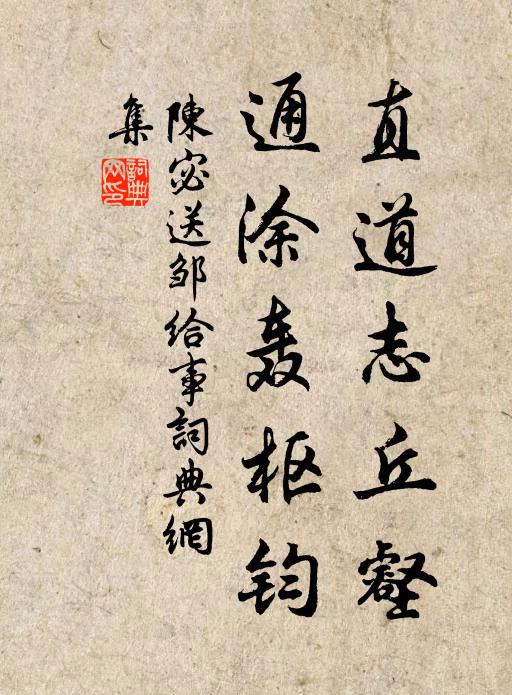 直道志丘壑
通涂轰枢钧
陳宓送邹给事詞典網
集
詞典
网印